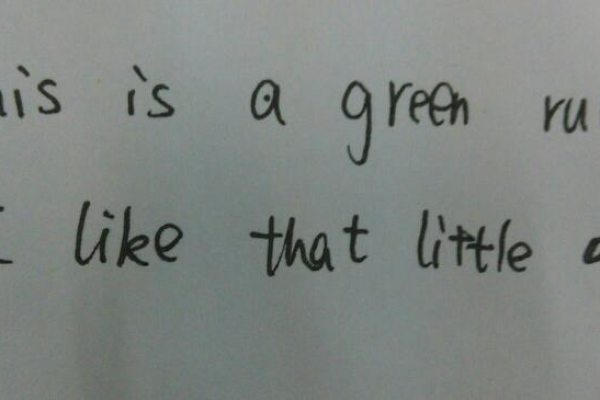 is a green
like that little